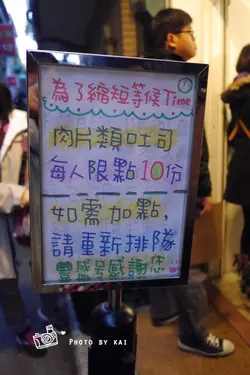 為了縮短等候Time
肉片類吐司
每人限點10份
如需加點,
請重新排隊
豐盛號感謝您
PHOTO BY KAI